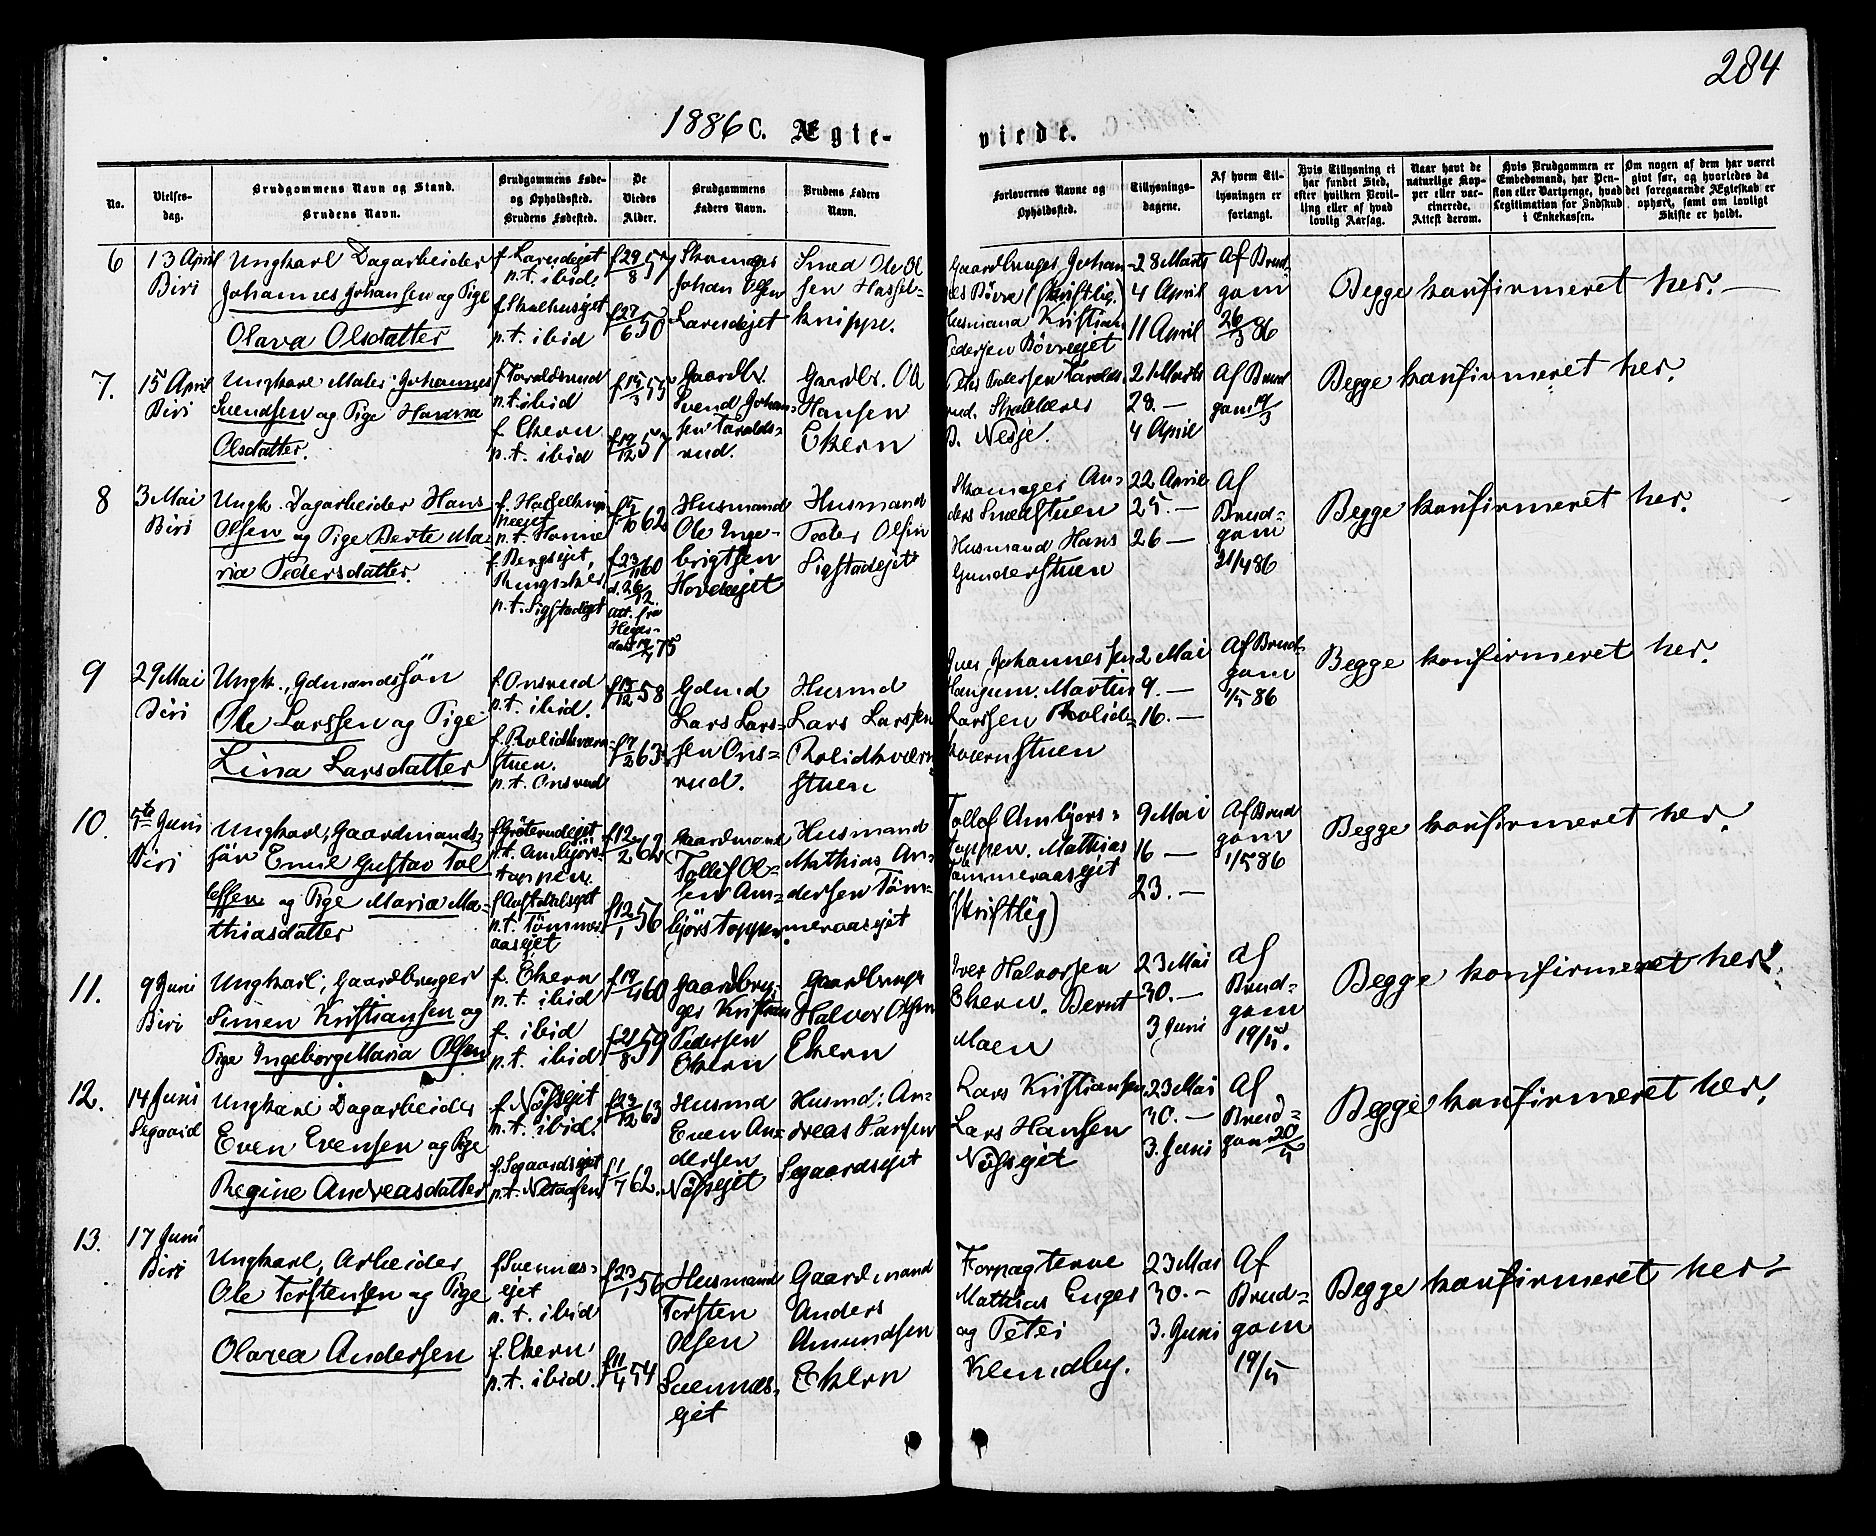 284
1886 C. Ægte-
viede.
No.
Vielses-
dag.
Brudgommens Navn og Stand.
Brudens Navn.
Brudgommens Føde-
og Opholdssted.
Brudens Fødested.
De
Viedes
Alder.
Brudgommens
Faders Navn.
Brudens Faders
Navn.
Forlovernes Navne og
Opholdssted.
Tillysnings-
dagene.
Af hvem Til-
lysningen er
forlangt.
Hvis Tillysning ei
har fundet Sted,
efter hvilken Bevil-
ling eller af hvad
lovlig Aarsag.
Naar havt de
naturlige Kop-
per eller vac-
cinerede.
Attest derom.
Hvis Brudgommen er
Embedsmand, har Pen-
sion eller Vartpenge, hvad
Legitimation for Indskud
i Enkekassen.
Om nogen af dem har været
gift før, og hvorledes da
det foregaaende Ægteskab er
ophørt, samt om lovligt
Skifte er holdt.
6
13 April
Biri
Ungkarl Dagarbeider
Johannes Johansen og Pige
Olava Olsdatter
p.t. ibid.
p.t. ibid
f 29/8 57
f 27/6 50
Johan Olsen
Smed Ole Ol
sen Hassel-
knippe.
Gaardbruger Johan-
nes Bövre (skriftlig.)
Husmand Kristian
Pedersen Bövreejet
28 Marts
4 April
11 April
Af Brud
gom
26/3 86
Begge konfirmeret her.
7.
15 April
Biri
Ungkarl Maler Johannes
Svendsen og Pige Hanna
Olsdatter.
f Taraldsrud
p.t. ibid
f Ekern
p.t. ibid
f 19/12 57
Gaardbr.
Svend Johan-
sen Taralds-
rud.
Gaardbr. Ol
Hansen
Ekern
Peter Pedersen Taralds
rud. Skollærer
B. Nesje.
21 Marts
28. —
4 April
Af Brud
gom 19/3
Begge konfirmeret her.
8
3 Mai
Biri
Ungk. Dagarbeider Hans
Olsen og Pige Berte Ma-
ria Pedersdatter.
f. Bergsejet,
Ringsaker
p.t. Sigstadejet
f 23/11 60
Husmand
Ole Inge-
brigtsen
Hovdeejet
Husmand
Peder Olsen
Sigstadejet
Skomager An-
ders Smedstuen
Husmand Hans
Gunderstuen
22 April
25. —
26 —
Af
Brud-
gom
21/4 86
Begge konfirmeret her.
9
29 Mai
Biri
Ungk., Gdmandssön
Ole Larssen og Pige
Lina Larsdatter
f. Onsrud
p.t. ibid.
f. Rolidkværn-
stuen.
p.t. Onsrud
f 15/12 58
f 7/2 63
Gdmd
Lars Lars-
sen Ons-
rud.
Husmd
Lars Larssen
Rolidkværn
stuen
Iver Johannessen
Haugum. Martin
Larssen Rolid-
kværnstuen
2 Mai
9. —
16. —
Af Brud-
gom
1/5 86
Begge konfirmeret her.
10.
5te Juni
Biri
Ungkarl, Gaardmands-
sön Emil Gustav Tol
lefsen og Pige Maria Ma-
thiasdatter
p.t. Tömmer
aasejet
f 12/2 62
f 12/1 56
Gaardmand
Tollef Ol-
sen Am-
björstoppen.
Husmand
Mathias An-
dersen Töm-
meraasejet
Tollef Ambjörs-
toppen. Mathias
Tömmeraasejet
(skriftlig)
9 Mai
16 —
23. —
Af Brud
gom
1/5 86
Begge konfirmeret her.
11.
9 Juni
Biri
Ungkarl, Gaardbruger
Simen Kristiansen og
Pige Ingeborg Maria Olsen
f. Ekern
p.t. ibid
f. ibid
p.t. ibid
f 21/8 59
Gaardbru-
ger Kristian
Pedersen
Ekern
Gaardbruger
Halvor Olsen
Ekern
Iver Halvorsen
Ekern. Bernt
Moen
23 Mai
30. —
3 Juni
Af
Brud-
gom
19/5.
Begge konfirmeret her.
12.
14 Juni
Segaard
Ungkarl Dagarbeider
Even Evensen og Pige
Regine Andreasdatter
f. Nössejet
p.t. ibid.
f. Segaardsejet
f 23/12 63
f 1/7 62.
Husmd
Even An-
dersen
Nössejet
Husmd: An-
dreas Larsen
Segaardsejet
Lars Kristiansen
Lars Hansen
Nössejet
23 Mai
30. —
3. Juni
Af
Brud-
gom 20/5
Begge konfirmeret her.
13.
17 Juni
Biri
Ungkarl, Arbeider
Ole Torstensen og Pige
Olava Andersen
f Svennæs-
ejet
p.t. ibid
f. Ekern
p.t. ibid.
f 23/1 56
f 11/4 54
Husmand
Torsten
Olsen
Svennæs-
ejet
Gaardmand
Anders
Amundsen
Ekern
Forpagterne
Mathias Enger
og Peter
Klundby.
23 Mai
30. —
3. Juni
Af
Brud-
gom
19/5
Begge konfirmeret her